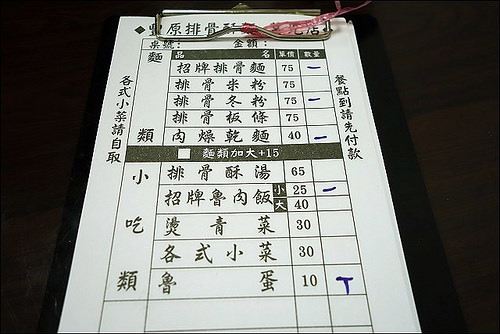 ◆豐原排骨酥麵
桌號: 金額:
品名 單價 數量
麵類
招牌排骨麵 75 一
排骨米粉 75
排骨冬粉 75 一
排骨板條 75
肉燥乾麵 40 一
麵類加大+15
小吃類
排骨酥湯 65
招牌魯肉飯 小 25 一
大 40
燙青菜 30
各式小菜 30
魯蛋 10 T
各式小菜請自取
餐點到請先付款